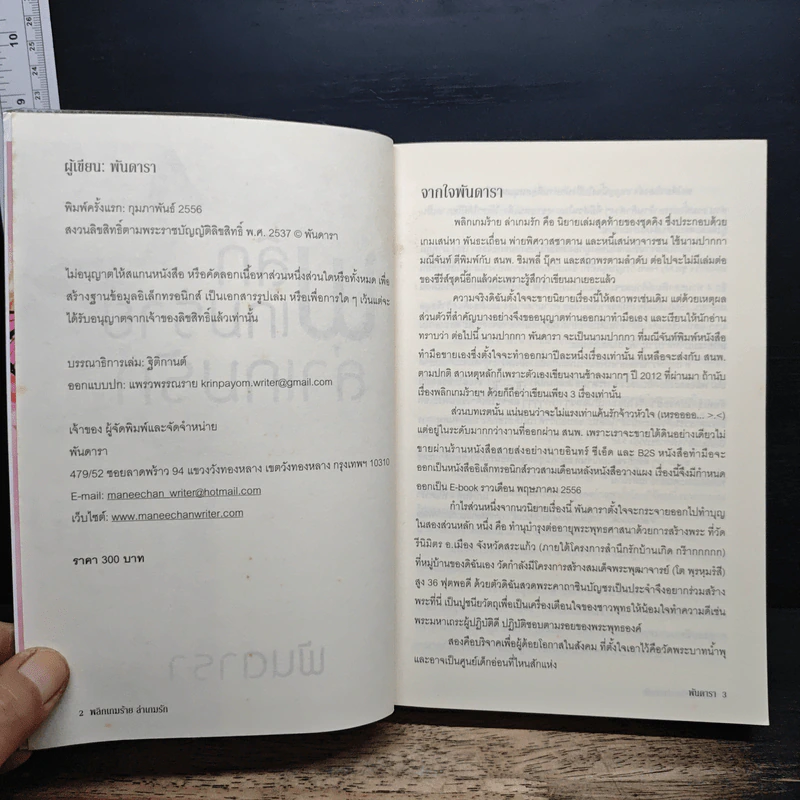 ผู้เขียน: พันดารา
พิมพ์ครั้งแรก: กุมภาพันธ์ 2556
สงวนลิขสิทธิ์ตามพระราชบัญญัติลิขสิทธิ์ พ.ศ. 2537 © พันดารา
ไม่อนุญาตให้สแกนหนังสือ หรือคัดลอกเนื้อหาส่วนหนึ่งส่วนใดหรือทั้งหมด เพื่อ
สร้างฐานข้อมูลอิเล็กทรอนิกส์ เป็นเอกสารรูปเล่ม หรือเพื่อการใด ๆ เว้นแต่จะ
ได้รับอนุญาตจากเจ้าของลิขสิทธิ์แล้วเท่านั้น
บรรณาธิการเล่ม: ฐิติกานต์
ออกแบบปก: แพรวพรรณราย krinpayom.writer@gmail.com
เจ้าของ ผู้จัดพิมพ์และจัดจำหน่าย
พันดารา
479/52 ซอยลาดพร้าว 94 แขวงวังทองหลาง เขตวังทองหลาง กรุงเทพฯ 10310
E-mail: maneechan_writer@hotmail.com
เว็บไซต์: www.maneechanwriter.com
ราคา 300 บาท
2 พลิกเกมร้าย ล่าเกมรัก
จากใจพันดารา
พลิกเกมร้าย ล่าเกมรัก คือ นิยายเล่มสุดท้ายของชุดคิง ซึ่งประกอบด้วย
เกมเสน่หา พันธะเถื่อน พ่ายพิศวาสซาตาน และหนี้เสน่หาจารชน ใช้นามปากกา
มณีจันท์ ตีพิมพ์กับ สนพ. ซิมพลี่ บุ๊คฯ และสถาพรตามลำดับ ต่อไปจะไม่มีเล่มต่อ
ของซีรีส์ชุดนี้อีกแล้วค่ะเพราะรู้สึกว่าเขียนมาเยอะแล้ว
ความจริงดิฉันตั้งใจจะขายนิยายเรื่องนี้ให้สถาพรเช่นเดิม แต่ด้วยเหตุผล
ส่วนตัวที่สำคัญบางอย่างจึงขออนุญาตท่านออกมาทำมือเอง และเรียนให้นักอ่าน
ทราบว่า ต่อไปนี้ นามปากกา พันดารา จะเป็นนามปากกา ที่มณีจันท์พิมพ์หนังสือ
ทำมือขายเองซึ่งตั้งใจจะทำออกมาปีละหนึ่งเรื่องเท่านั้น ที่เหลือจะส่งกับ สนพ.
ตามปกติ สาเหตุหลักก็เพราะตัวเองเขียนงานช้าลงมากๆ ปี 2012 ที่ผ่านมา ถ้านับ
เรื่องพลิกเกมร้ายฯ ด้วยก็ถือว่าเขียนเพียง 3 เรื่องเท่านั้น
ส่วนบทเรทนั้น แน่นอนว่าจะไม่แรงเท่าแค้นรักจ้าวหัวใจ (เหรอออออ... >.<)
แต่อยู่ในระดับมากกว่างานที่ออกผ่าน สนพ. เพราะเราจะขายใต้ดินอย่างเดียวไม่
ขายผ่านร้านหนังสือสายส่งอย่างนายอินทร์ ซีเอ็ด และ B2S หนังสือทำมือจะ
ออกเป็นหนังสืออิเล็กทรอนิกส์ราวสามเดือนหลังหนังสือวางแผง เรื่องนี้จึงมีกำหนด
ออกเป็น E-book ราวเดือน พฤษภาคม 2556
กำไรส่วนหนึ่งจากนวนิยายเรื่องนี้ พันดาราตั้งใจจะกระจายออกไปทำบุญ
ในสองส่วนหลัก หนึ่ง คือ ทำนุบำรุงต่ออายุพระพุทธศาสนาด้วยการสร้างพระ ที่วัด
รีนิมิตร อ.เมือง จังหวัดสระแก้ว (ภายใต้โครงการสำนึกรักบ้านเกิด กรี๊ากกกกก)
ที่หมู่บ้านของดิฉันเอง วัดกำลังมีโครงการสร้างสมเด็จพระพุฒาจารย์ (โต พรหมรังสี)
สูง 36 ฟุตพอดี ด้วยตัวดิฉันสวดพระคาถาชินบัญชรเป็นประจำจึงอยากร่วมสร้าง
พระที่นี่ เป็นปูชนียวัตถุเพื่อเป็นเครื่องเตือนใจของชาวพุทธให้น้อมใจทำความดีเช่น
พระมหาเถระผู้ปฏิบัติดี ปฏิบัติชอบตามรอยของพระพุทธองค์
สองคือบริจาคเพื่อผู้ด้อยโอกาสในสังคม ที่ตั้งใจเอาไว้คือวัดพระบาทน้ำพุ
และอาจเป็นศูนย์เด็กอ่อนที่ไหนสักแห่ง
พันดารา 3